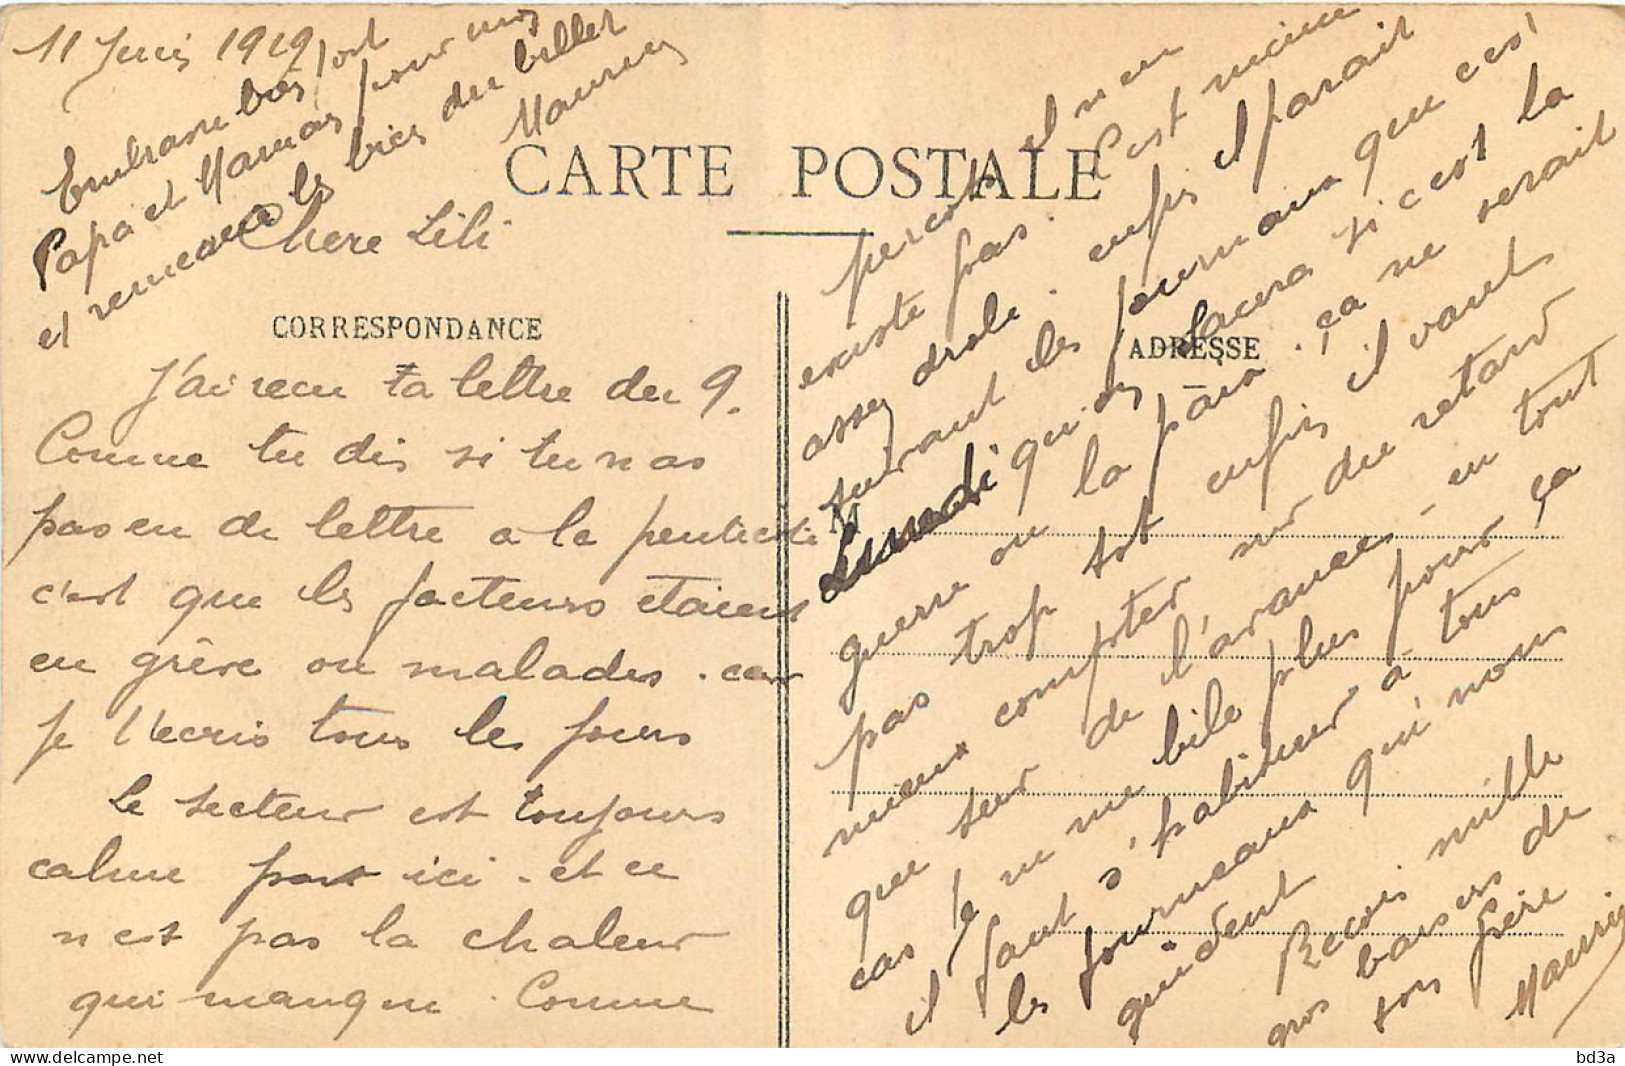 11 Juin 1919
Embrasse bien fort
Papa et Maman pour moi
et remercie les bien du billet
Maurice
CARTE POSTALE
Chere Lili
CORRESPONDANCE
J'ai recu ta lettre du 9.
Comme tu dis si tu n as
pas eu de lettre a la pentecote
c'est que les facteurs etaient
en grève ou malades. car
je t'ecris tous les jours
le secteur est toujours
calme par ici. et ce
n est pas la chaleur
qui manque. Comme
perco il n en
existe pas. C'est meme
assez drole. enfin il parait
suivant les journaux que c'est
Lundi qui si c'est la
guerre ou la paix. ça ne serait
pas trop tot enfin il vaut
mieux compter sur du retard
que sur de l'avance, en tout
cas je ne me bile plus pour ça
il faut s'habituer à tous
les fourneaux qui nous
guident
Recois mille
gros baisers de
ton frère
Maurice
ADRESSE
M
bd3a